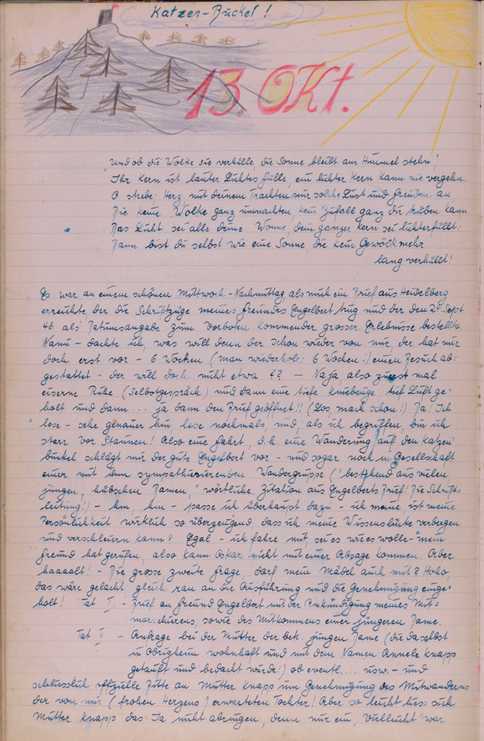 Katzen-Buckel!
13. Okt.
Und ob die Wolke sie verhülle, die Sonne bleibt am Himmel stehn!
Ihr Kern ist lauter Lichtesfülle, ein lichter Kern kann nie vergehn.
O strebe Herz mit deinem Trachten nur solche Lust und Freuden an
Die keine Wolke ganz umnachten kein Zufall ganz dir trüben kann
Das Licht sei alle deine Wonne, dein ganzer Kern sei lichterfüllt.
Dann bist du selbst wie eine Sonne die kein Gewölk mehr
lang verhüllt!
Es war an einem schönen Mittwoch-Nachmittag als mich ein Brief aus Heidelberg
erreichte der die Schriftzüge meines Freundes Engelbert trug und der den 24. Sept.
46 als Datumsangabe zum Vorboten kommender grosser Erlebnisse bestellte
Nanu - dachte ich, was will denn der schon wieder von mir, der hat mir
doch erst vor - 6 Wochen (man wiederhole: 6 Wochen!) einen Besuch ab-
gestattet - der will doch nicht etwa ?? - Na ja also zuerst mal
eiserne Ruhe (Selbstgespräch) und dann eine tiefe Kniebeuge tief Luft ge-
holt und dann ... ja dann den Brief geöffnet!! (Los mach schon!) Da! Ich
lese - sehe genauer hin lese nochmals und, als ich begriffen, bin ich
starr vor Staunen! Also eine Fahrt, d.h. eine Wanderung auf den Katzen-
buckel schlägt mir der gute Engelbert vor - und sogar noch in Gesellschaft
einer mit ihm sympathisierenden Wandergruppe ("bestehend aus vielen
jungen, hübschen Damen," wörtliche Zitation aus Engelberts Brief! Die Schrift-
leitung!) - hm, hm - passe ich überhaupt dazu - ich meine ist meine
Persönlichkeit wirklich so überzeugend, dass ich meine Wissenslücke verbergen
und verschleiern kann? Egal - ich fahre mit sei es wie es wolle "mein
Freund hat gerufen, also kann Oskar nicht mit einer Absage kommen. Aber
haaaalt! - Die grosse zweite Frage darf mein Mädel auch mit? Hoho,
das wäre gelacht gleich ran an die Ausführung und die Genehmigung einge-
holt! Tat I. - Brief an Freund Engelbert mit der Ankündigung meines Mit-
marschierens, sowie des Mitkommens einer jüngeren Dame.
Tat II - Anfrage bei der Mutter der bek. jungen Dame (die daselbst
in Obrigheim wohnhaft und mit dem Namen Annele Knapp
getauft und bedacht wurde!) ob eventl.... usw. - und
schliesslich Bitte an Mutter Knapp um Genehmigung des Mitwanderns
der von mir (frohen Herzens) erwarteten Tochter! Aber so leicht liess sich
Mutter Knapp das Ja nicht abringen, denn nur ein, vielleicht war